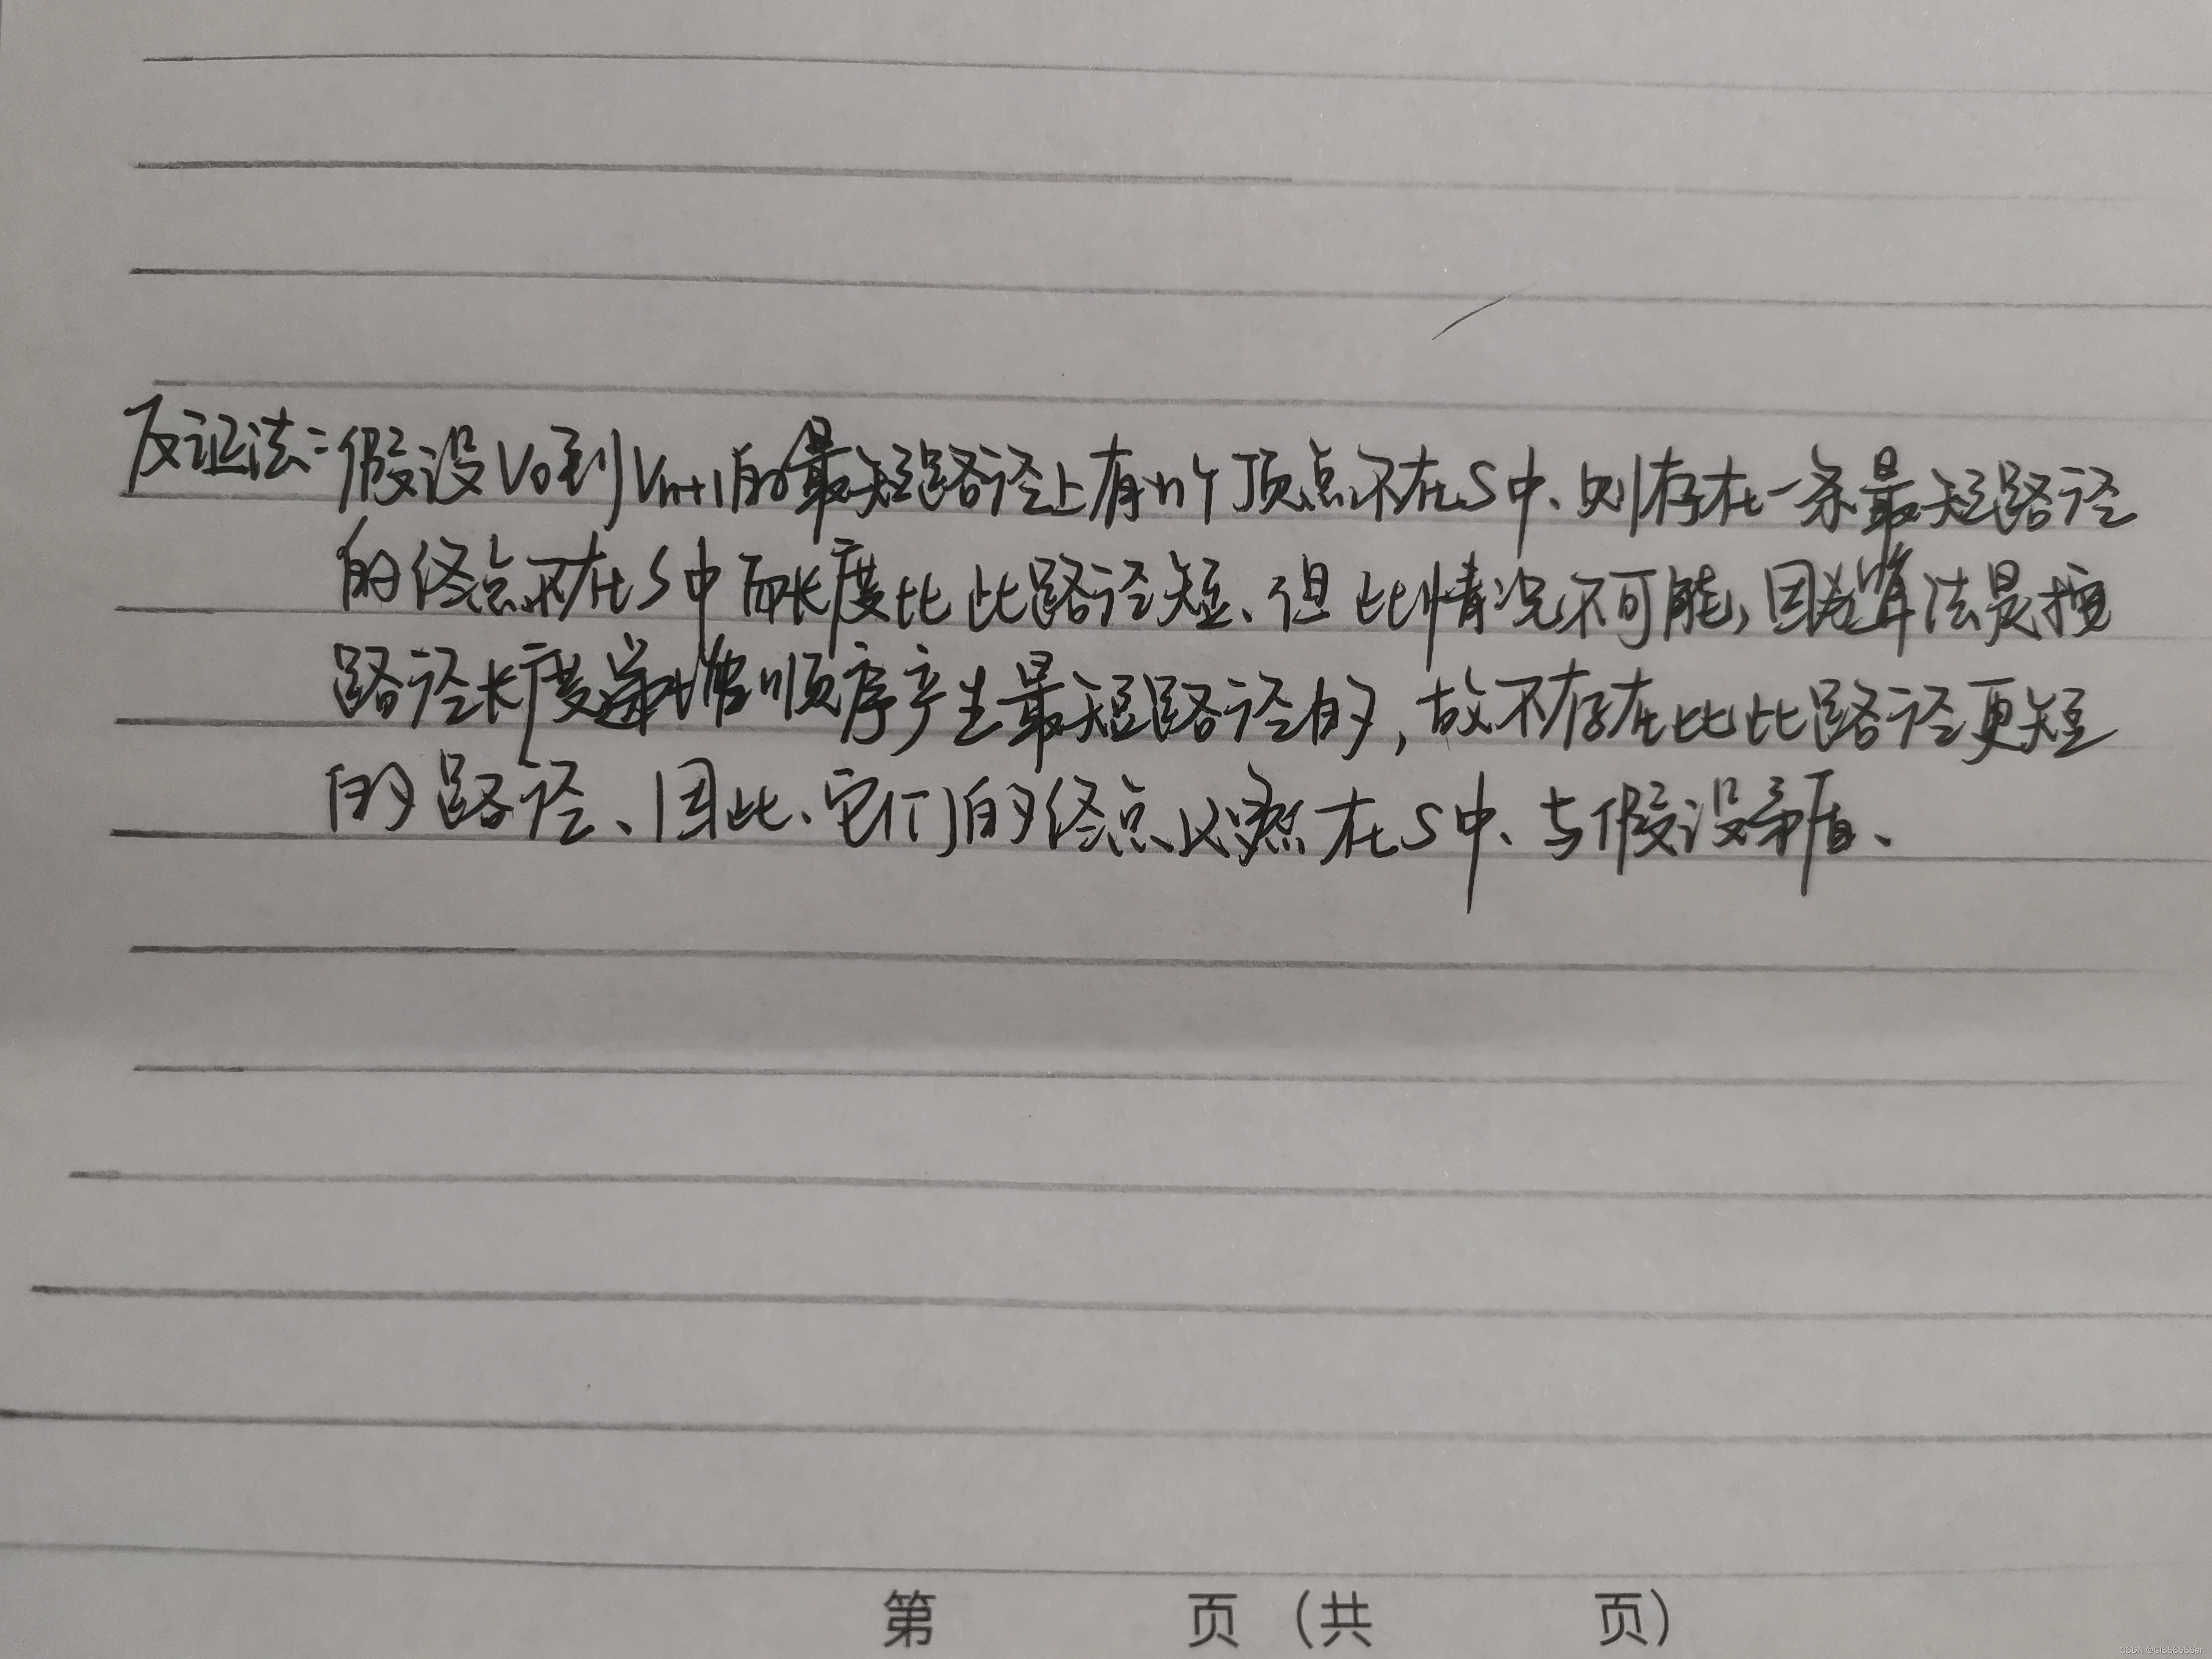 反证法:假设V0到Vn+1的最短路径上有n个顶点不在S中、则存在一条最短路径
的终点不在S中而长度比此路径短、但此情况不可能,因为算法是按
路径长度递增顺序产生最短路径的,故不存在比此路径更短
的路径、因此、它们的终点必然在S中、与假设矛盾、
第 页(共 页)